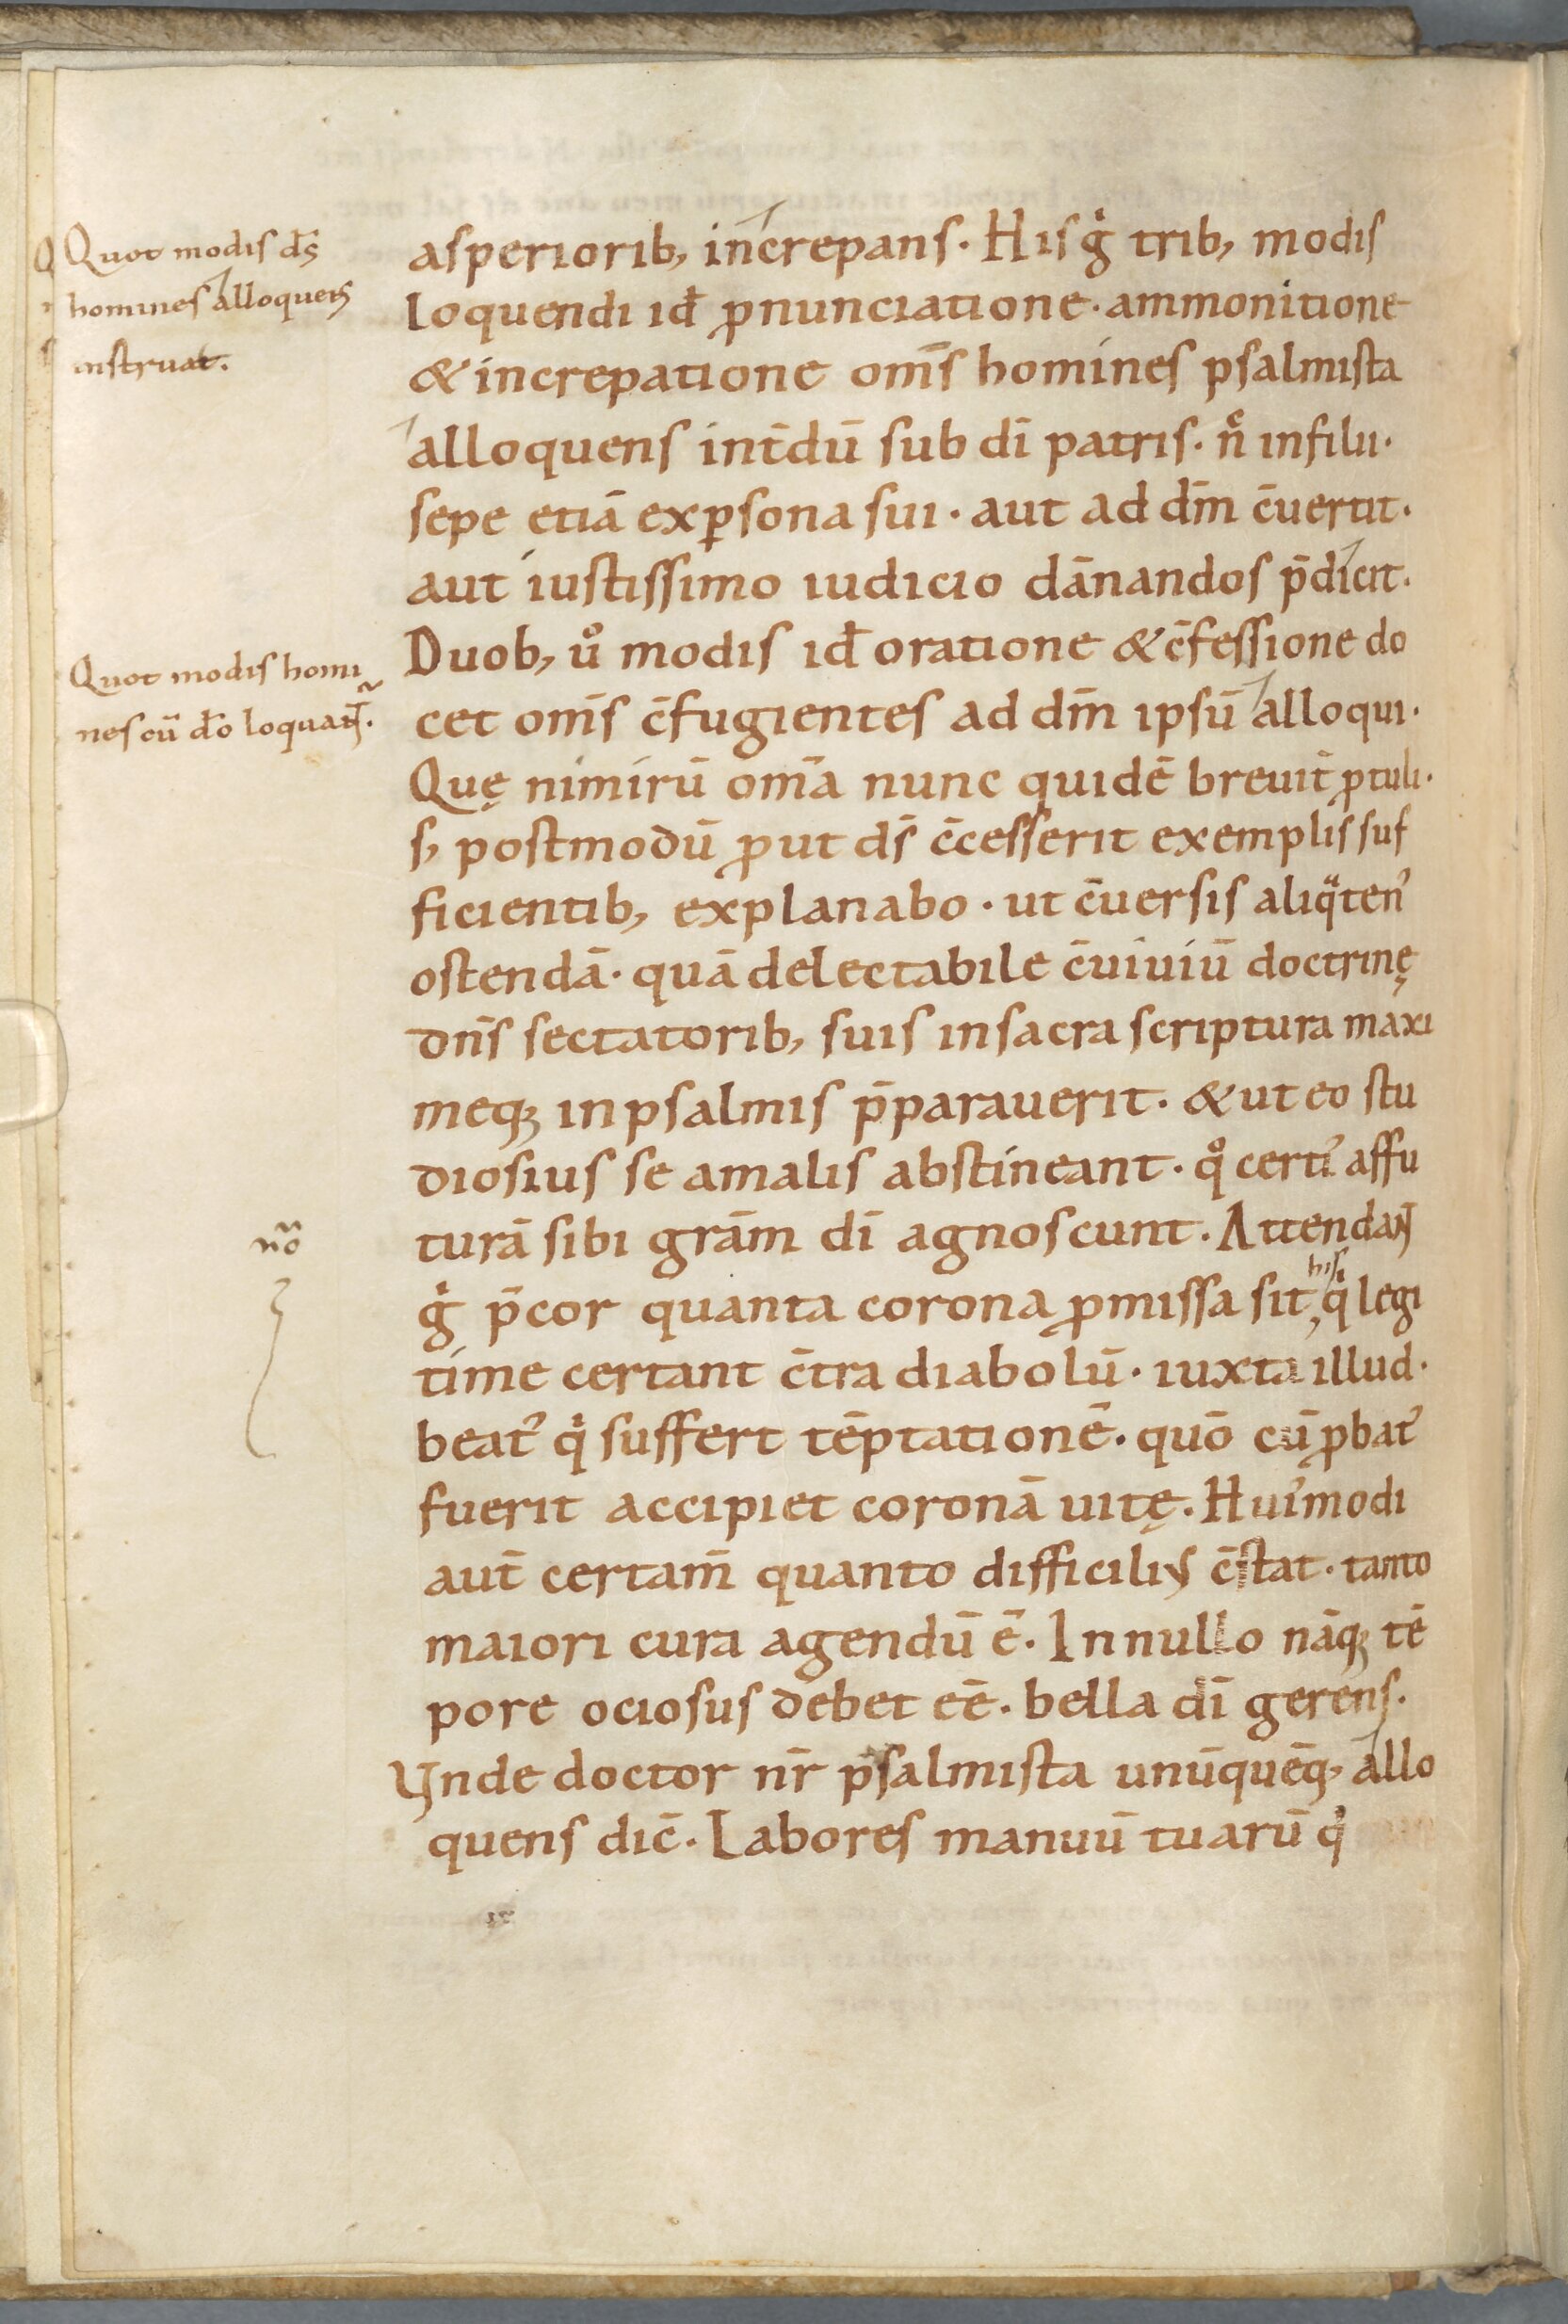 Quot modis ds̄
homines alloquens
instruat.
Quot modis homi
nes cū do̅ loquant̄.
nō
asperiorib, increpans. His gͥ trib, modis
loquendi id̄ ꝓnunciatione. ammonitione
& increpatione om̄s homines psalmista
alloquens int̄dū sub dī patris. n̄ͨ infilii.
sepe etiā exꝑsona sui. aut ad dm̄ c̄uertit.
aut iustissimo iudicio dānandos p̄dicit.
Duob, uͦ modis id̄ oratione & c̄fessione do
cet om̄s c̄fugientes ad dm̄ ipsū alloqui.
Quę nimirū om̄a nunc quidē breuit̄ ꝓtuli.
s, postmodū ꝓut ds̄ c̄cesserit exemplis suf
ficientib, explanabo. ut c̄uersis aliqͣtenꝰ
ostendā. quā delectabile c̄uiuiū doctrinę
dn̄s sectatorib, suis insacra scriptura maxi
meqꝫ inpsalmis p̄parauerit. & ut eo stu
diosius se amalis abstineant. qͦ certiꝰ affu
turā sibi grām dī agnoscunt. Attendant̄
gͥ p̄cor quanta corona ꝓmissa sit, his qͥ legi
time certant c̄tra diabolū. iuxta illud.
beatꝰ qͥ suffert tēptationē. quō cū ꝓbatꝰ
fuerit accipiet coronā uitę. Huiꝰmodi
aut̄ certam̄ quanto difficilius c̄stat. tanto
maiori cura agendū ē. Innullo nāqꝫ tē
pore ociosus debet eē. bella dī gerens.
Vnde doctor nr̄ psalmista unūquēqꝫ, allo
quens dic̄. Labores manuū tuarū qͥ